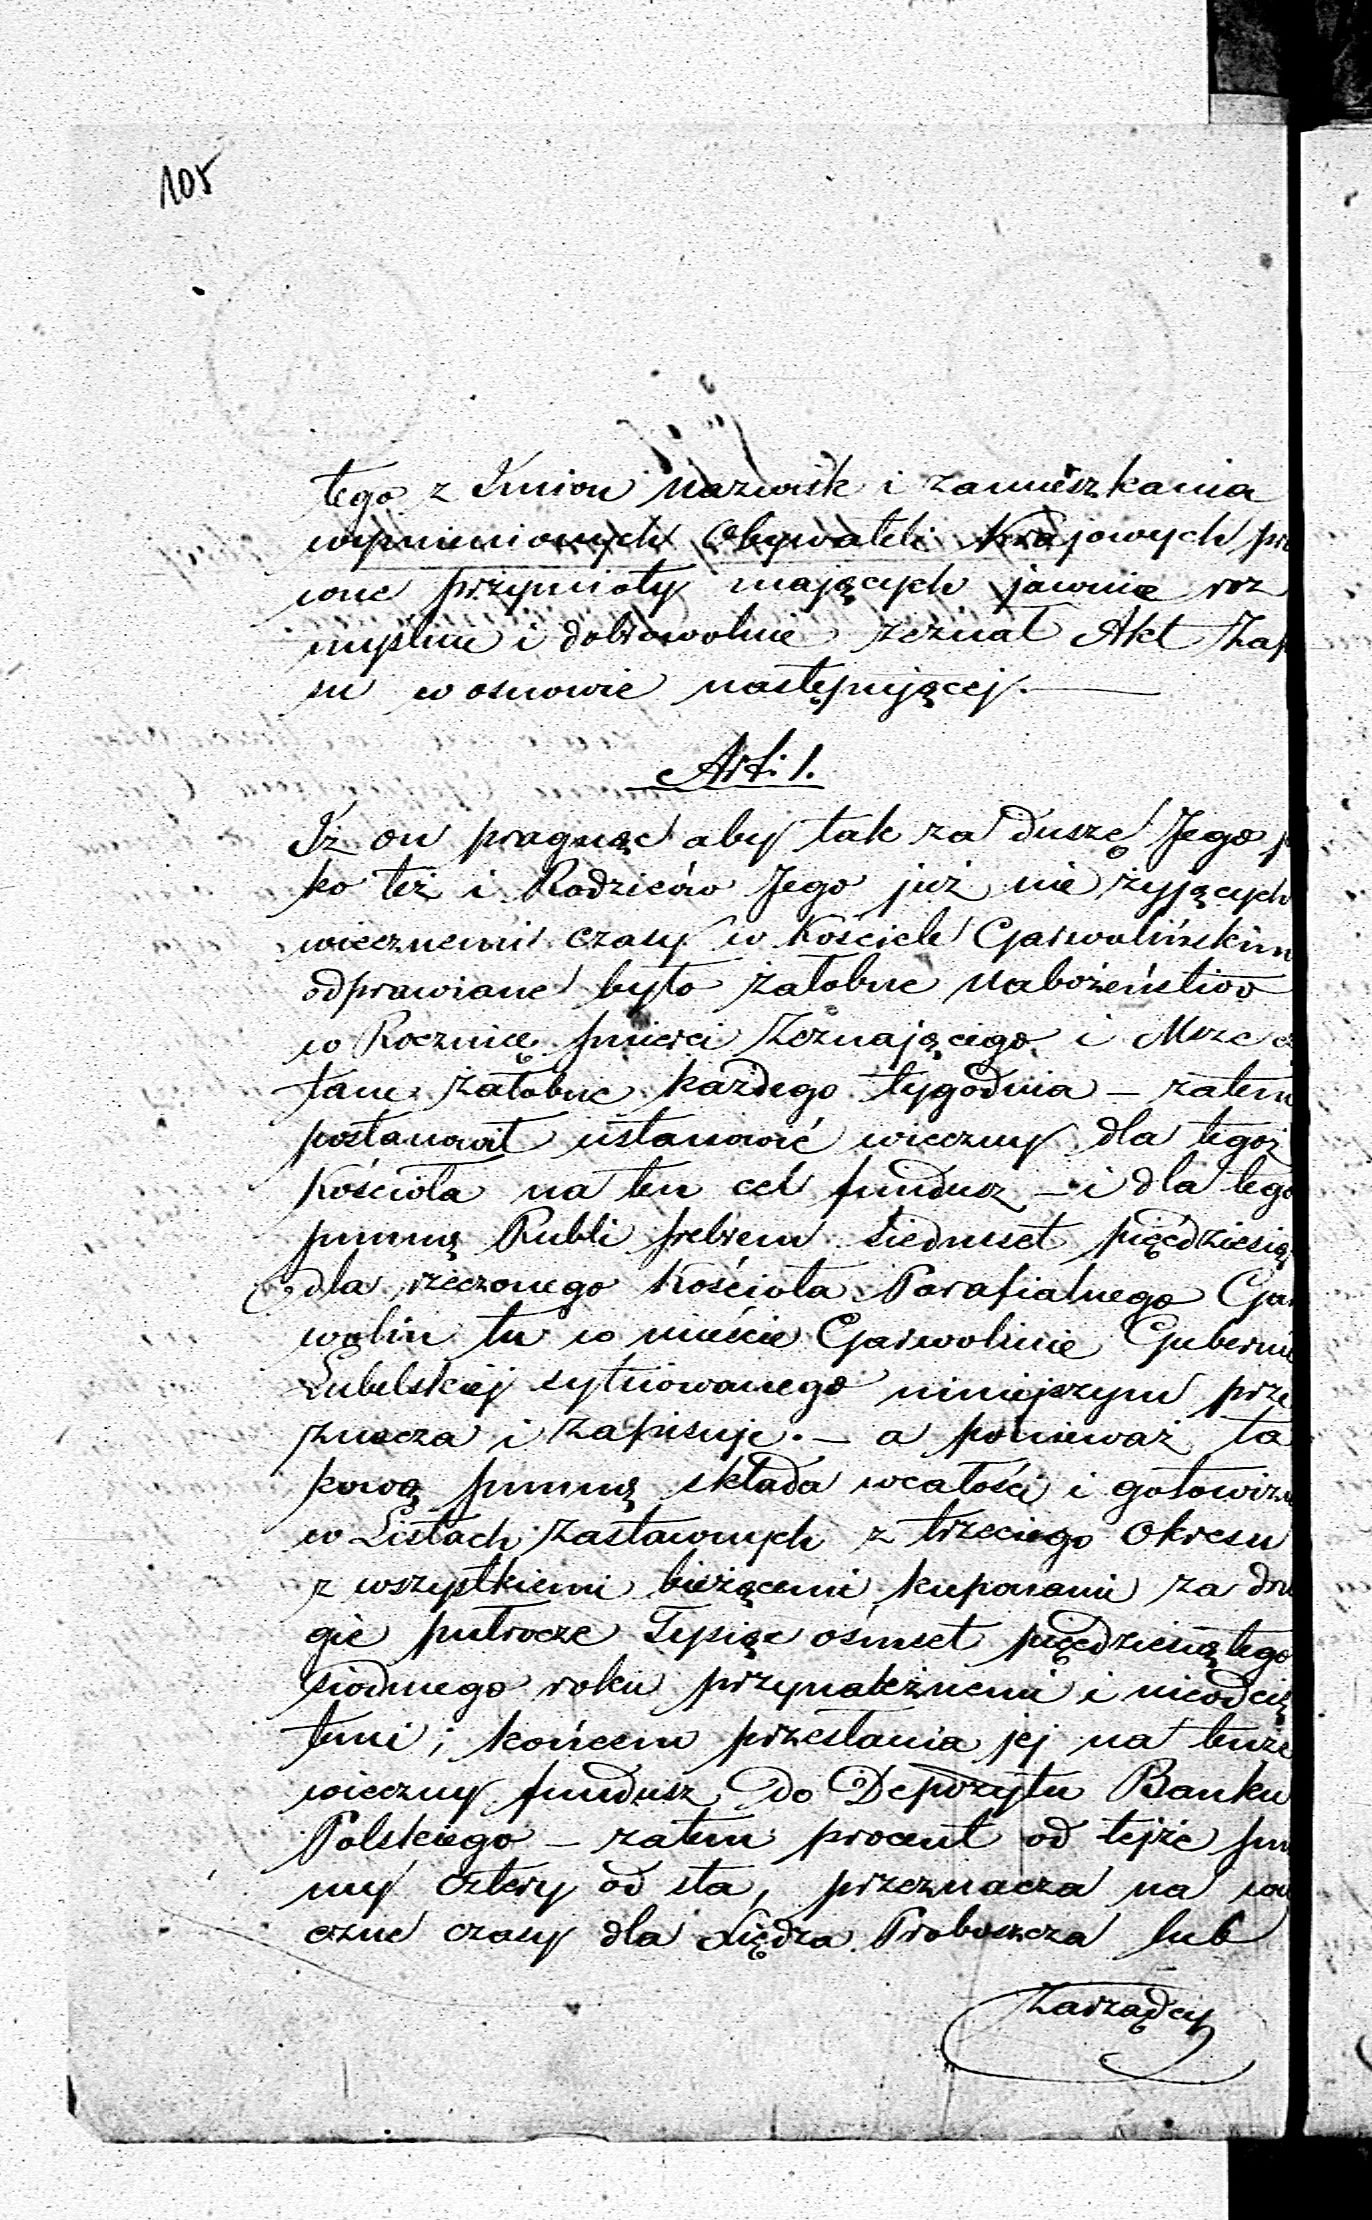 105
tego z Imion Nazwisk i zamieszkania
wymienionych Obywateli Krajowych pra
wne przymioty mających jawnie roz
myślnie i dobrowolnie zeznał Akt Zap
su w osnowie następującej.—
Art: 1.
Iż on pragnąc aby tak za duszę Jego ja
ko też i Rodziców Jego już nie żyjących
wiecznemi czasy w Kościele Garwolińskim
odprawiane było żałobne Nabożeństwo
w Rocznicę śmierci Zeznającego i Msze czy
tane żałobne każdego tygodnia – zatem
postanowił ustanowić wieczny dla tegoż
Kościoła na ten cel fundusz – i dla tego
summę Rubli srebrem siedmset pięćdziesiąt
dla rzeczonego Kościoła Parafialnego Gar
wolin tu w mieście Garwolinie Gubernii
Lubelskiej sytuowanego niniejszym prze
znacza i zapisuje. – a ponieważ ta
kową summę składa wcałości i gotowizną
w Listach Zastawnych z trzeciego Okresu
z wszystkiemi bieżącemi kuponami za dru
gie półrocze Tysiąc ośmset pięćdziesiątego
siódmego roku przynależnemi i nieodcię
temi; końcem przesłania jej na tenże
wieczny fundusz do Depozytu Banku
Polskiego – zatem procent od tejże sum
my cztery od sta, przeznacza na wie
czne czasy dla Xiędza Proboszcza lub
Zarządcy